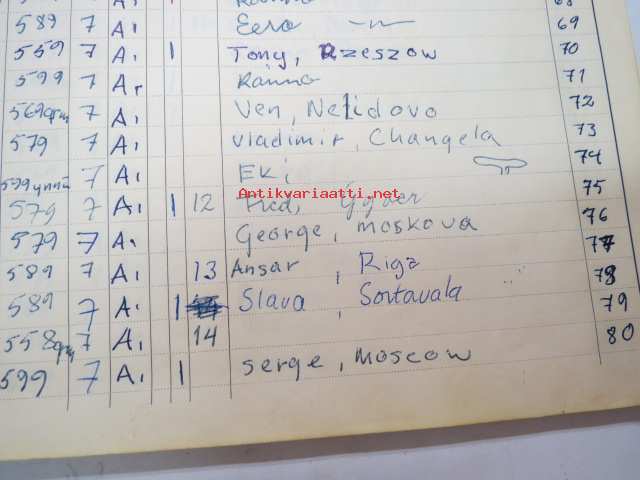 68
589 7 A1 Eero 69
559 7 A1 1 Tony, Rzeszow 70
599 7 A1 Raimo 71
569 7 A1 Ven, Nelidovo 72
579 7 A1 Vladimir, Changela 73
599 7 A1 Eki 74
Antikvariaatti.net
579 7 A1 1 12 75
579 7 A1 George, moskova 76
589 7 A1 13 Ansar, Riga 77
589 7 A1 1 Slava, Sortavala 78
558 7 A1 14 79
599 7 A1 1 serge, Moscow 80